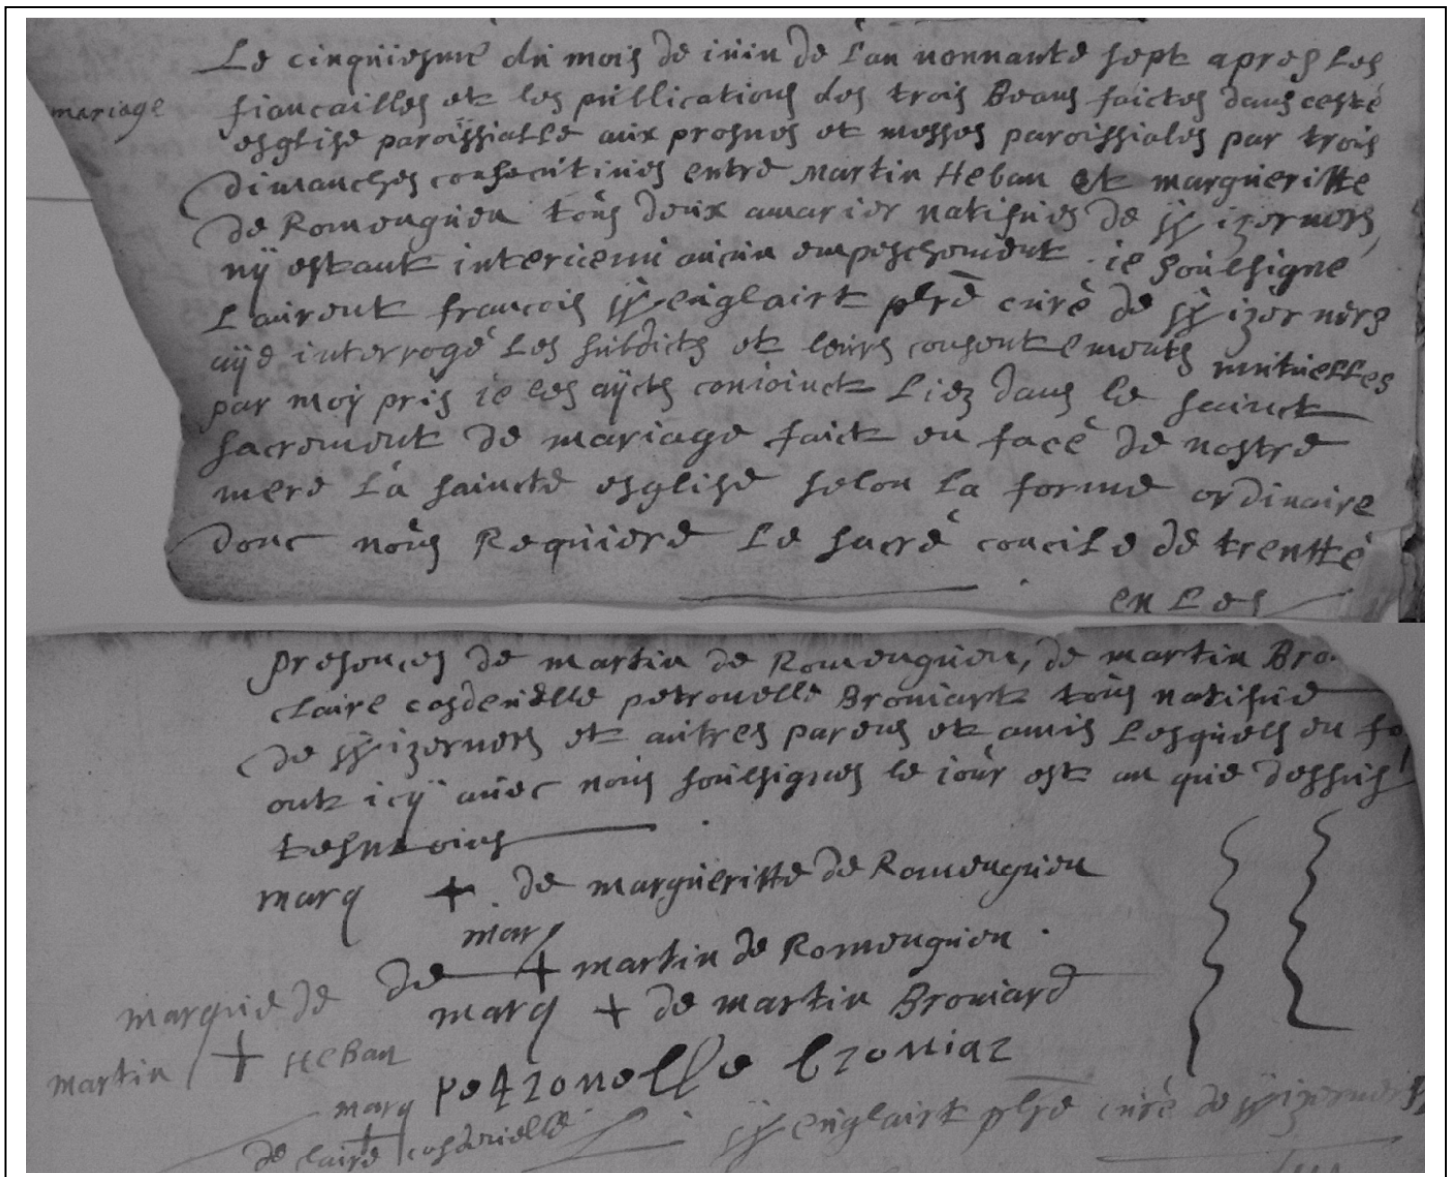 Le cinquiesme du mois de iuin de l'an nonnante sept apres les
mariage
fiancailles et les publications des trois Beans faictes dans ceste
esglise paroissialle aux prosnes et messes paroissiales par trois
dimanches consecutives entre Martin Heban et margueritte
de Romenguien tous deux amarier natifves de Wizerners
nÿ estant intervenu aucun empeschement ie soubsigne
Laurent francois Wenglairt pbre curé de Wizerners
aÿe interrogé les subdicts et leurs consentements mutuelles
par moy pris ie les aÿcts conioinct Liez dans le sainct
sacrement de mariage faict en face de nostre
mere la saincte esglise selon la forme ordinaire
donc nous Requiere Le sacré concile de trentte
en Les
presences de martin de Romenguien, de martin Bro
claire cosdenelle petronelle Broniart tous natifve
de Wizerners et autres parens et amis Lesquels en fo
ont icÿ avec nous soubsignes le iour est an que dessus
tesmoins
marq + de margueritte de Romenguien
marq
de + martin de Romenguien
marq + de martin Broniard
marque de
martin + Heban
petronelle broniar
marq
de claire + cosdenelle
Wenglairt pbre curé de Wizerners